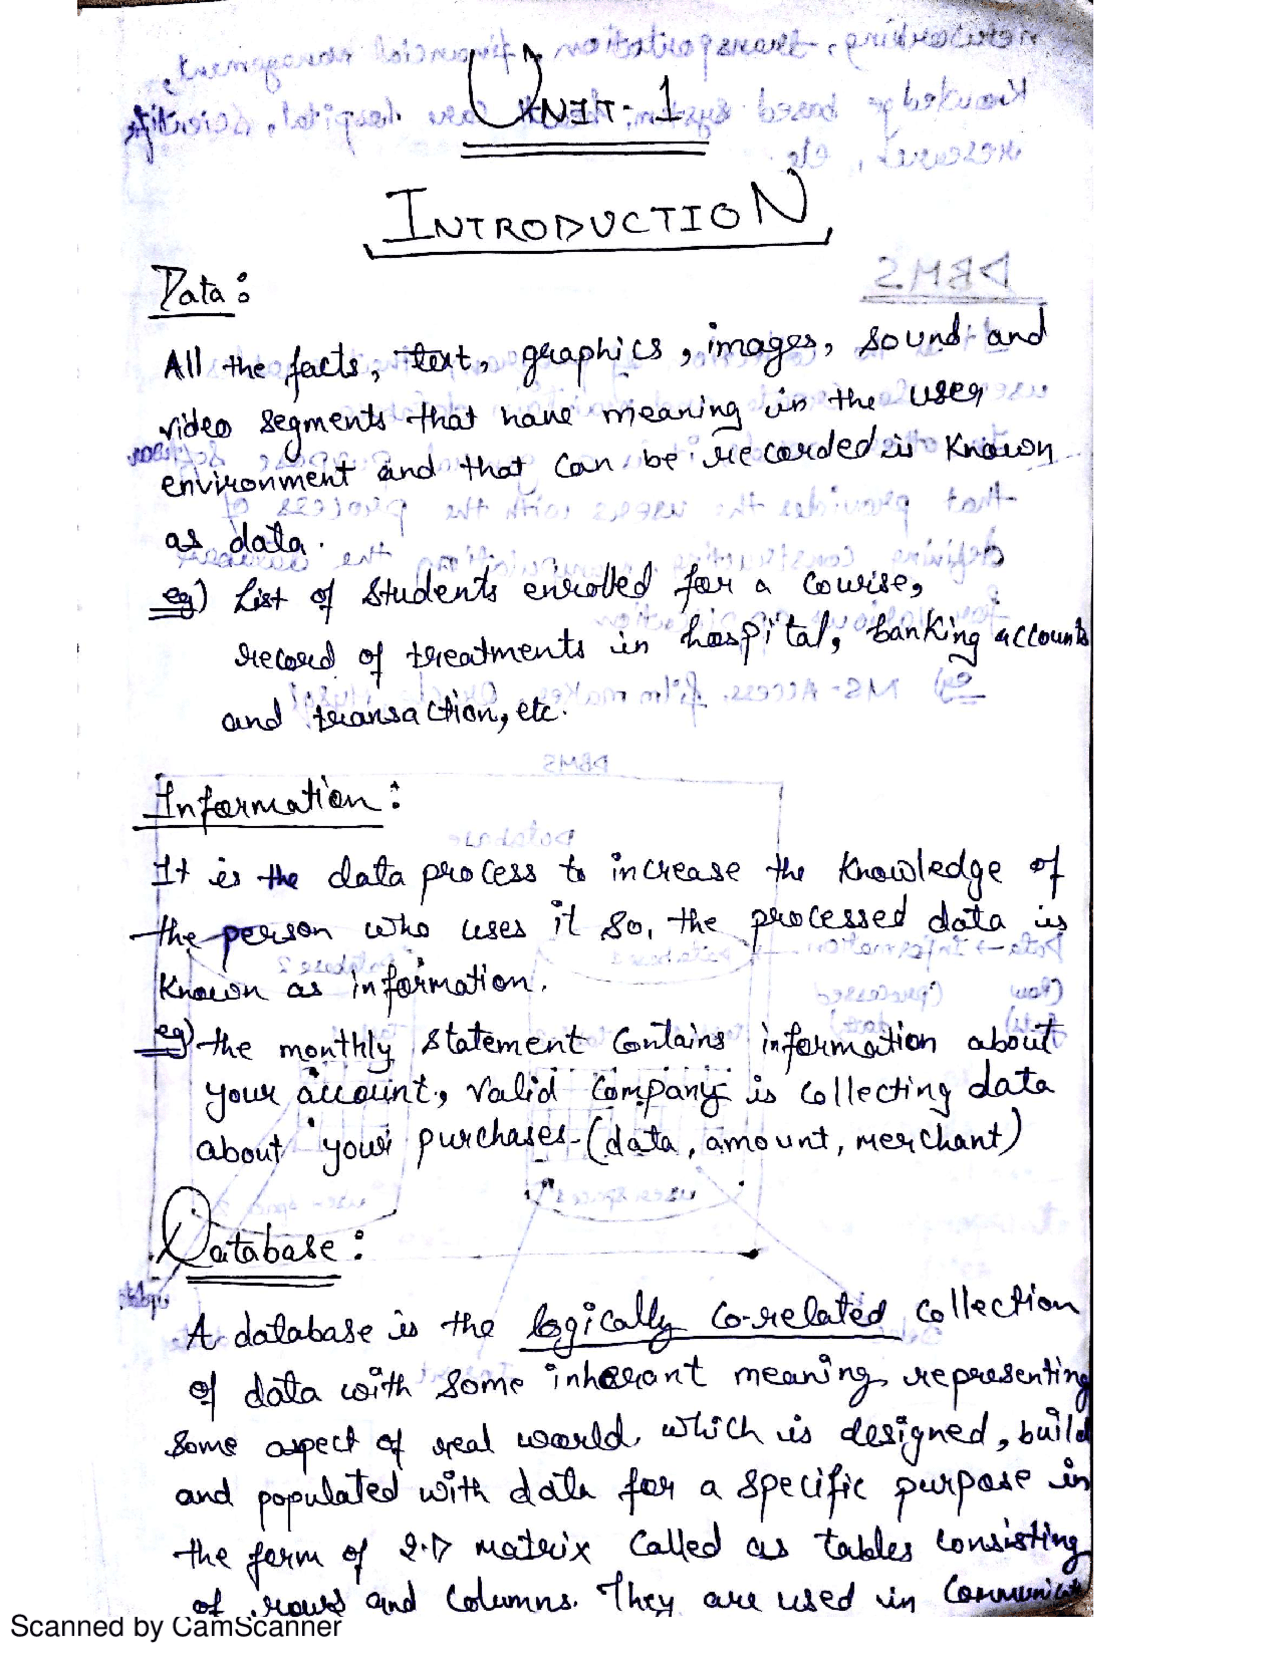 UNIT-1
INTRODUCTION
Data:
All the facts, text, graphics, images, sound and
video segments that have meaning in the user
environment and that can be recorded is known
as data.
eg) List of students enrolled for a course,
record of treatments in hospital, banking accounts
and transaction, etc.
Information:
It is the data process to increase the knowledge of
the person who uses it so, the processed data is
known as information.
eg) the monthly statement contains information about
your account, valid company is collecting data
about your purchases (data, amount, merchant)
Database:
A database is the logically co-related collection
of data with some inherant meaning, representing
some aspect of real world, which is designed, build
and populated with data for a specific purpose in
the form of 2-D matrix called as tables consisting
of rows and columns. They are used in communicat
Scanned by CamScanner